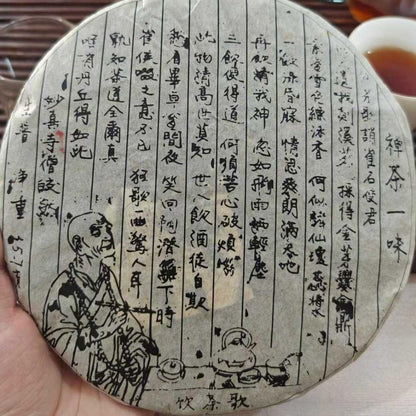 禅茶一味
誚崔石使君
遗我剡溪茗 採得金芽爨金鼎
素瓷雪色飘沫香 何似諸仙瓊蕊浆
一飲涤昏寐 情思爽朗满天地
再飲清我神 忽如飛雨洒輕塵
三飲便得道 何須苦心破煩惱
此物清高世莫知 世人飲酒徒自欺
畢卓瓮間夜 笑向陶潜籬下時
崔侯啜之意不已 狂歌一曲驚人耳
孰知茶道全爾真
唯有丹丘得如此
妙真寺僧皎然
生普 净重
饮茶歌